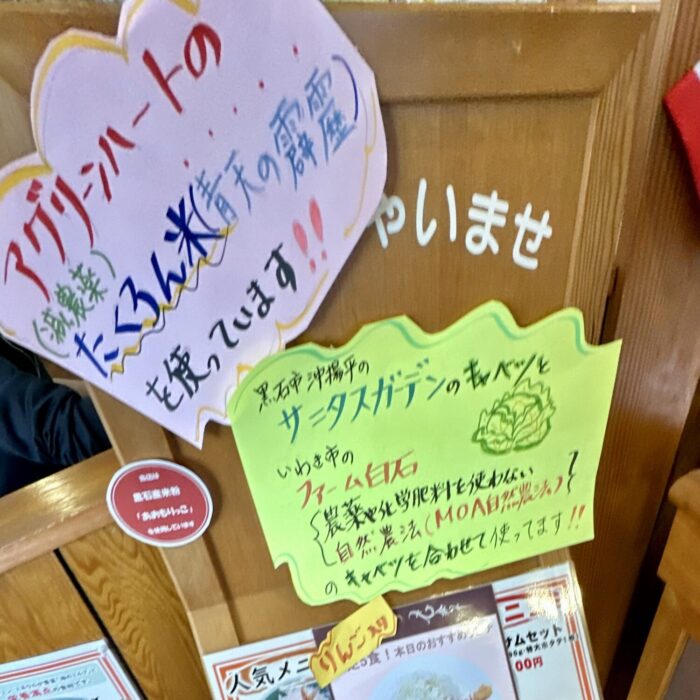 アグリーンハートの
(減農薬)
たくろん米(青天の霹靂)
を使っています!!
ゃいませ
黒石市沖揚平の
サニタスガーデンのキャベツと
いわき市の
ファーム白石
農薬や化学肥料を使わない
自然農法(MOA自然農法)
のキャベツを合わせて使ってます!!
当店は
黒石産米粉
「あおもりっこ」
を使用しています
りんご入り
人気メニ
食!本日のおすすめ
サムセット
00円